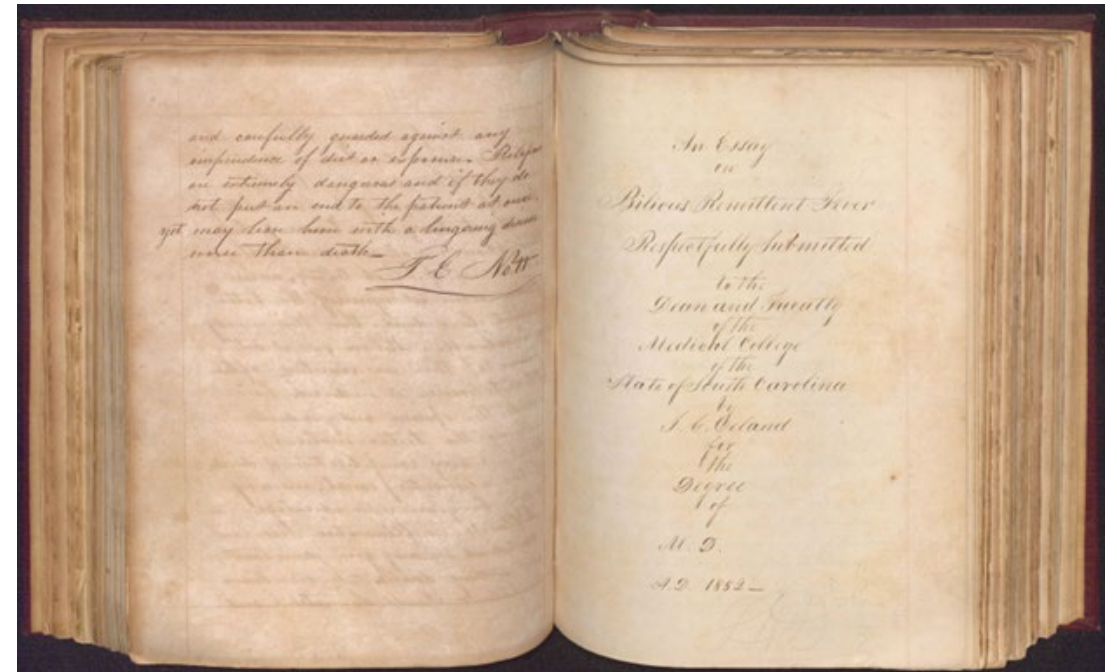 and carefully guarded against any
imprudence of diet or exposure. Relapses
are extremely dangerous and if they do
not put an end to the patient at once
yet may leave him with a lingering disease
worse than death—
T. E. Nott
An Essay
on
Bilious Remittent Fever
Respectfully Submitted
to the
Dean and Faculty
of the
Medical College
of the
State of South Carolina
by
for
the
Degree
of
M. D.
A.D. 1852—